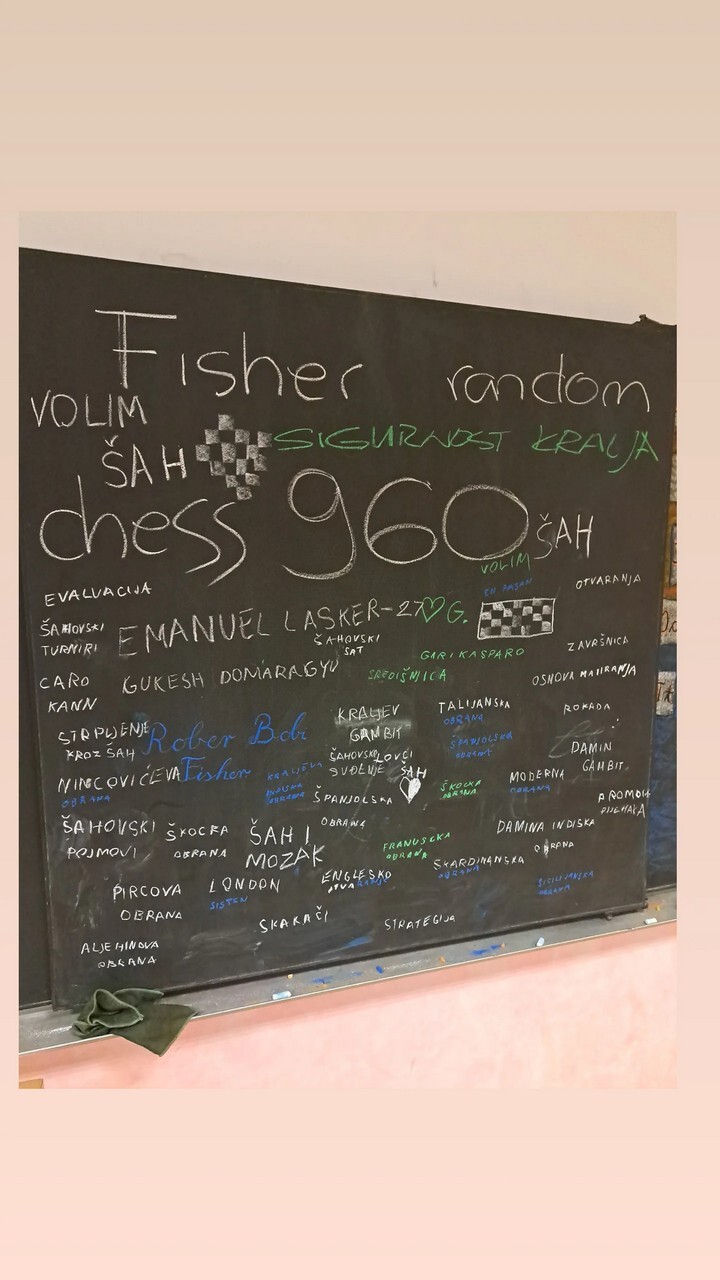 Fisher random
VOLIM
ŠAH
SIGURNOST KRALJA
chess 960
ŠAH
VOLIM
EN PASAN
OTVARANJA
EVALVACIJA
EMANUEL LASKER-27 G.
ŠAHOVSKI
TURNIRI
ŠAHOVSKI
SAT
GARI KASPARO
ZAVRŠNICA
CARO
KANN
GUKESH DOMARAGYU
SREDIŠNJICA
OSNOVA MATIRANJA
STRPLJENJE
KROZ ŠAH
Rober Bobi
Fisher
KRALJEV
GAMBIT
TALIJANSKA
OBRANA
ROKADA
ŠPANJOLSKA
OBRANA
DAMIN
GAMBIT
NIMCOVIĆEVA
OBRANA
KRALJEVA
INDIJSKA
OBRANA
ŠAHOVSKO
SUĐENJE
LOVCI
ŠAH
ŠPANJOLSKA
OBRANA
ŠKOCKA
OBRANA
MODERNA
OBRANA
PROMOCIJA
PJEŠAKA
ŠAHOVSKI
POJMOVI
ŠKOCKA
OBRANA
ŠAH I
MOZAK
FRANUSCKA
OBRANA
DAMINA INDISKA
OBRANA
SKARDINANSKA
OBRANA
PIRCOVA
OBRANA
LONDON
SISTEM
ENGLESKO
OTVARANJE
SICILIJANSKA
OBRANA
SKAKAČI
STRATEGIJA
ALJEHINOVA
OBRANA